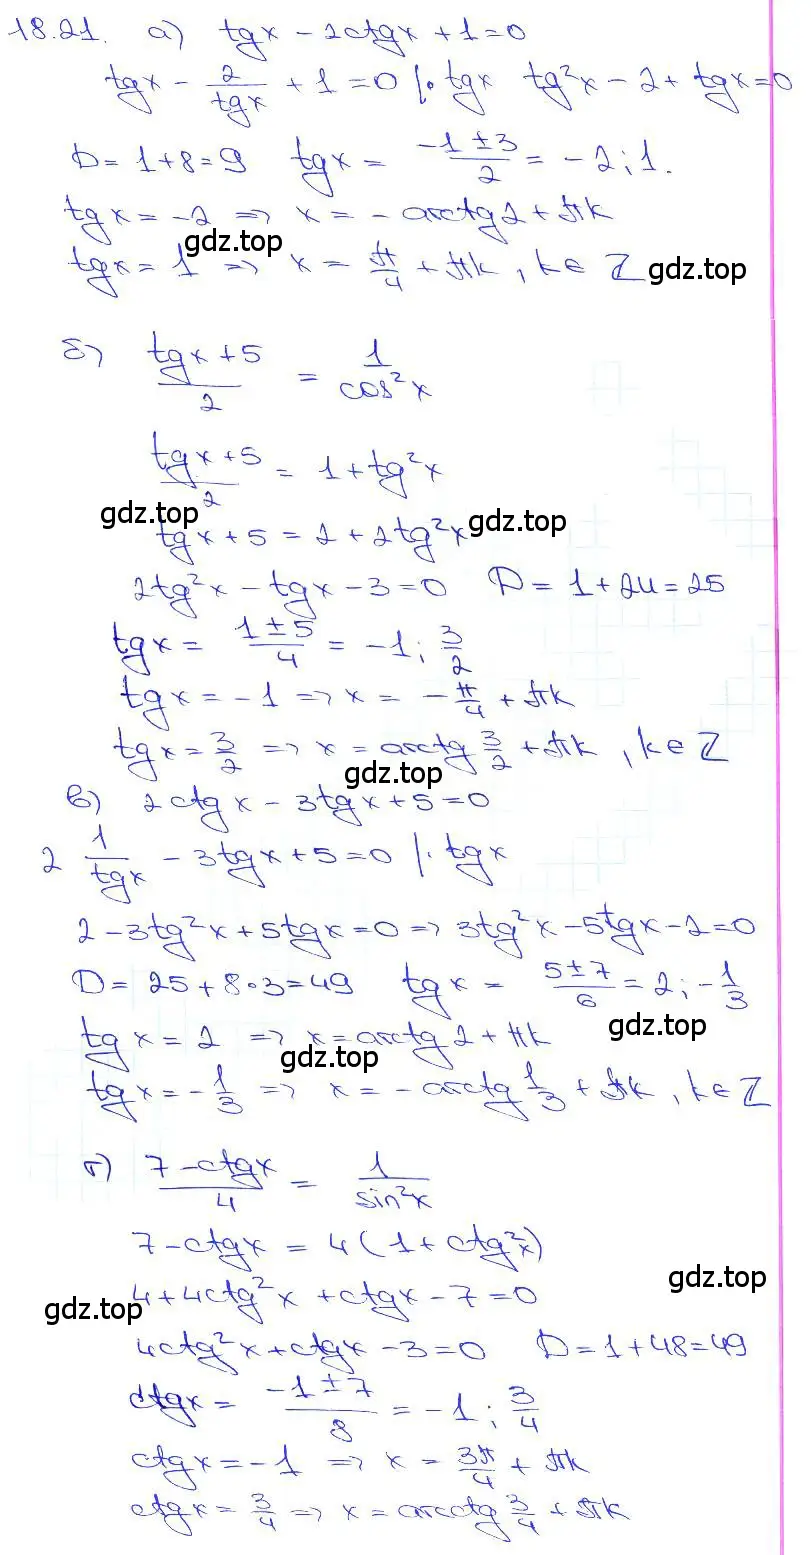 18.21. а) tgx - 2ctgx + 1 = 0
tgx - 2/tgx + 1 = 0 |· tgx   tg²x - 2 + tgx = 0
D = 1 + 8 = 9   tgx = (-1 ± 3)/2 = -2; 1.
tgx = -2 => x = - arctg2 + πk
gdz.top
tgx = 1 => x = π/4 + πk, k ∈ Z
gdz.top
б) (tgx + 5)/2 = 1/cos²x
(tgx + 5)/2 = 1 + tg²x
gdz.top
gdz.top
tgx + 5 = 2 + 2tg²x
2tg²x - tgx - 3 = 0   D = 1 + 24 = 25
tgx = (1 ± 5)/4 = -1; 3/2
tgx = -1 => x = -π/4 + πk
tgx = 3/2 => x = arctg 3/2 + πk, k ∈ Z
gdz.top
в) 2ctgx - 3tgx + 5 = 0
2 1/tgx - 3tgx + 5 = 0 |· tgx
2 - 3tg²x + 5tgx = 0 => 3tg²x - 5tgx - 2 = 0
D = 25 + 8·3 = 49   tgx = (5 ± 7)/6 = 2; -1/3
gdz.top
tgx = 2 => x = arctg2 + πk
gdz.top
tgx = -1/3 => x = - arctg 1/3 + πk, k ∈ Z
г) (7 - ctgx)/4 = 1/sin²x
7 - ctgx = 4(1 + ctg²x)
gdz.top
4 + 4ctg²x + ctgx - 7 = 0
gdz.top
4ctg²x + ctgx - 3 = 0   D = 1 + 48 = 49
ctgx = (-1 ± 7)/8 = -1; 3/4
ctgx = -1 => x = 3π/4 + πk
ctgx = 3/4 => x = arcctg 3/4 + πk